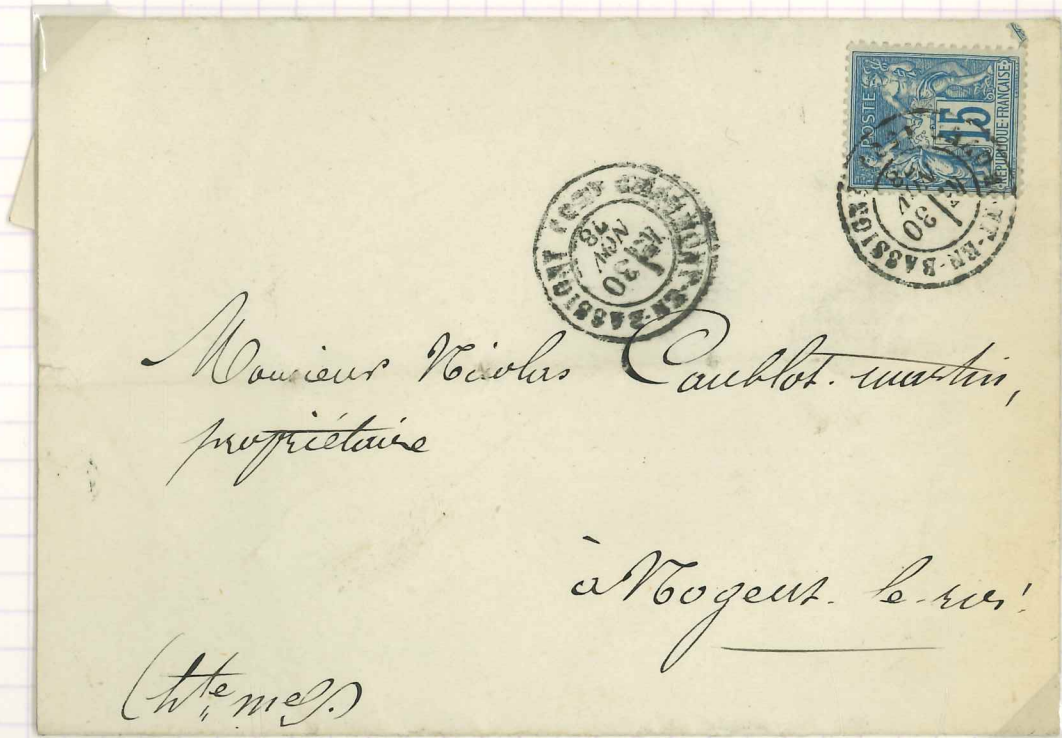 POSTE
15
REPUBLIQUE FRANÇAISE
CHAUMONT-EN-BASSIGNY
30
NOV
78
CHAUMONT-EN-BASSIGNY
30
NOV
78
Monsieur Nicolas Caublot-martin,
propriétaire
à Nogent-le-roi
(hte me)